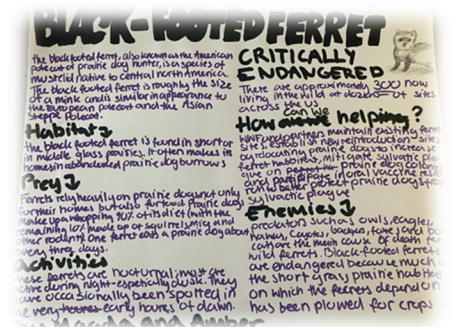 BLACK-FOOTED FERRET
the black footed ferret, also known as the American
polecat or prairie dog hunter, is a species of
mustelid native to central north America.
The black footed ferret is roughly the size
of a mink and is similar in appearance to
the European polecat and the Asian
Steppe Polecat.
Habitat
the black footed ferret is found in short or
in middle glass prairies. It often makes its
homes in abandoned prairie dog burrows
Prey
Ferrets rely heavily on prairie dogs not only
for their homes but also for food. Prairie dogs
make up a whopping 90% of its diet (with the
remaining 10% made up of squirrels, mice and
other rodents). One ferret eats a prairie dog about
every three days.
activities
these ferrets are nocturnal; most are
active during night-especially dusk. They
have occasionally been spotted in
the very early hours of dawn.
and Amber
CRITICALLY
ENDANGERED
There are approximately 300 now
living in the wild at dozens of sites
across the US
How can we helping?
WWF and partners maintain existing ferret
sites, establish new reintroduction sites
by relocating prairie dogs to increase
ferret habitat, mitigate sylvatic plague
on prairie dog colonies
and oral vaccine
to better protect prairie dogs from
sylvatic plague
Enemies
predators such as owls, eagles,
hawks, coyotes, badgers, foxes and bob
cats are the main cause of death for
wild ferrets. Black-footed ferrets
are endangered because much of
the short grass prairie habitat
on which the ferrets depend on
has been plowed for crops